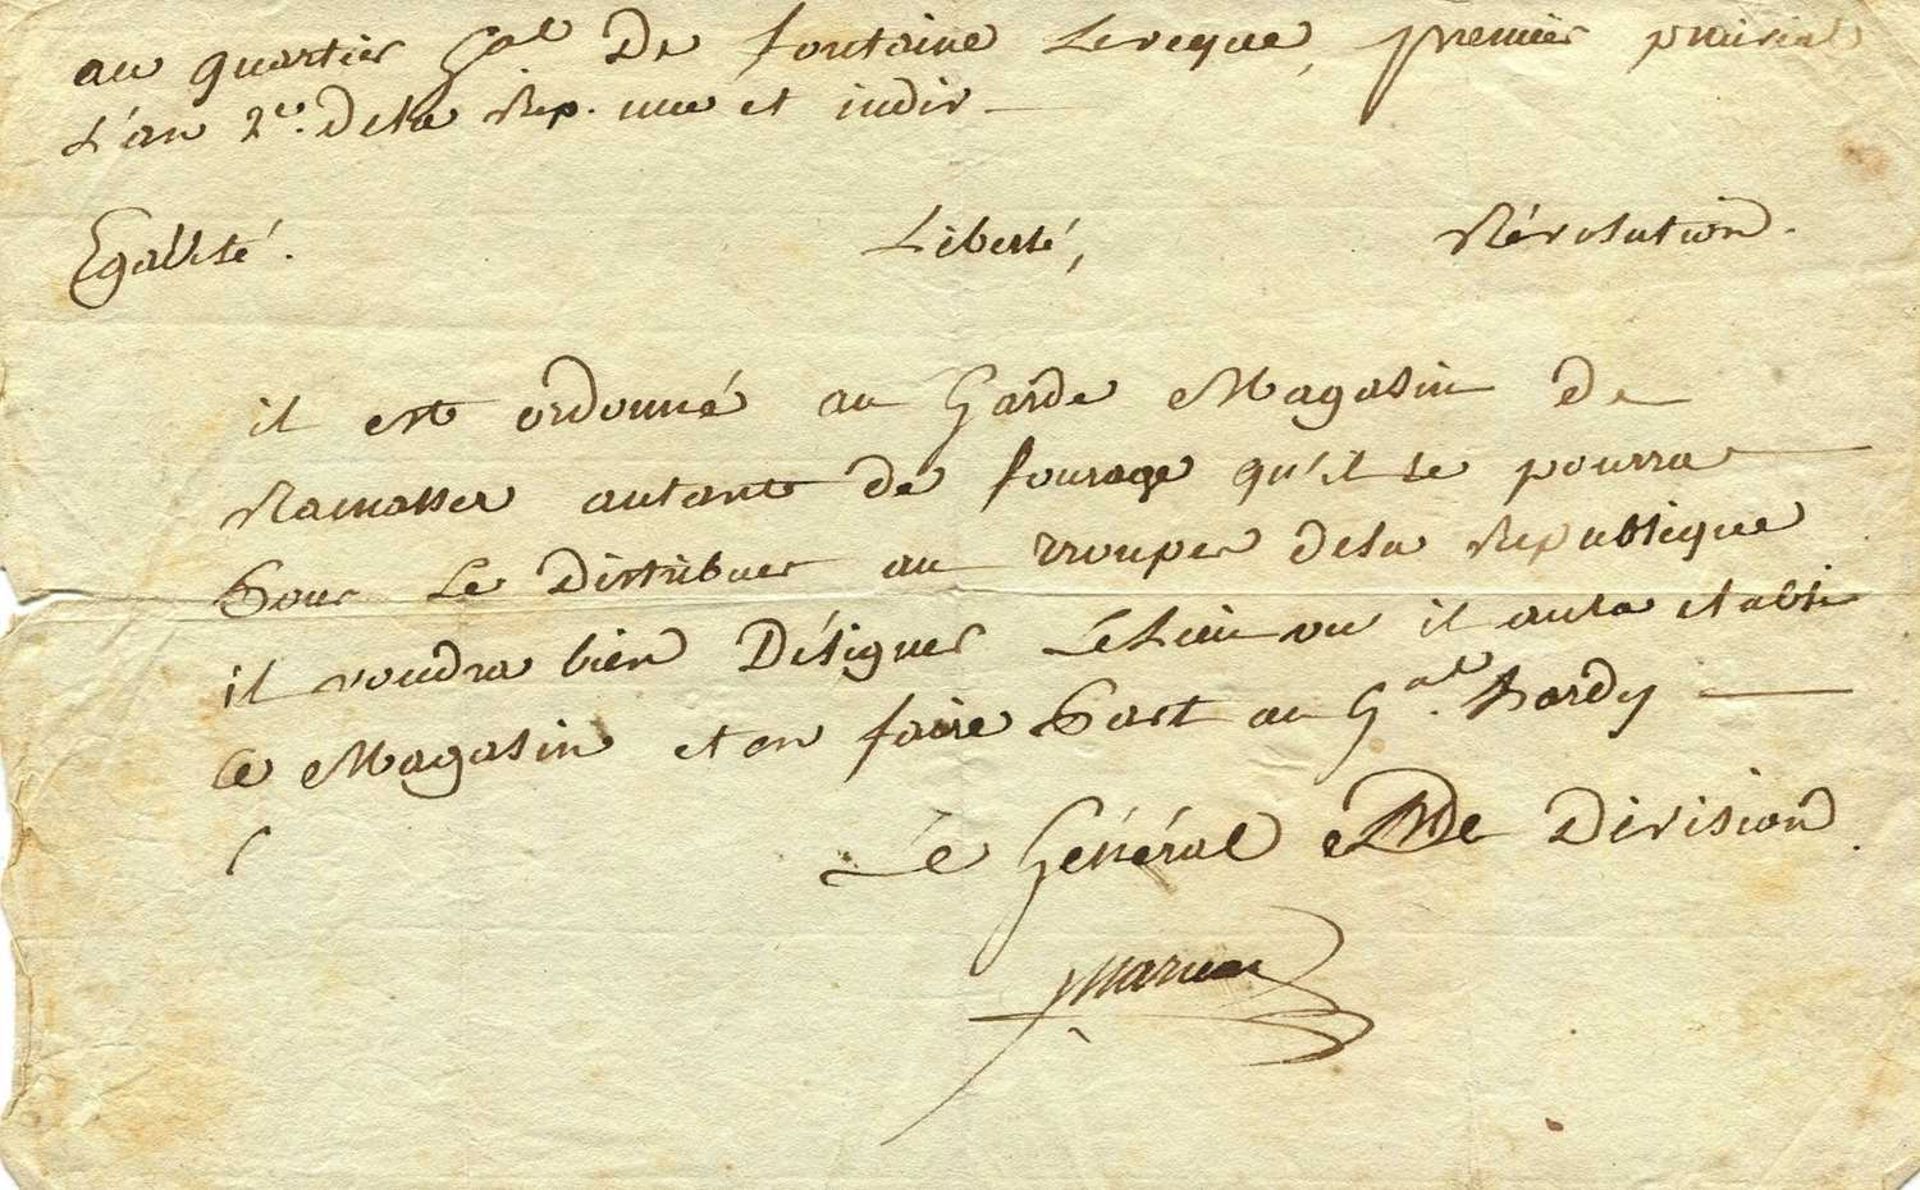 au quartier Gal De fontaine Leveque, premier prairial
L'an 2e. Dela Rep. une et indiv
Egalité. Liberté, Révolution.
il est ordonné au Garde Magasin De
Ramasser autant de fourage qu'il se pourra
Pour Le Distribuer au trouper dela Republique
il voudra bien Désigner Le Lieu ou il aura etabli
Ce Magasin et en faire Part au Gal. hardy
Le Général De Division.